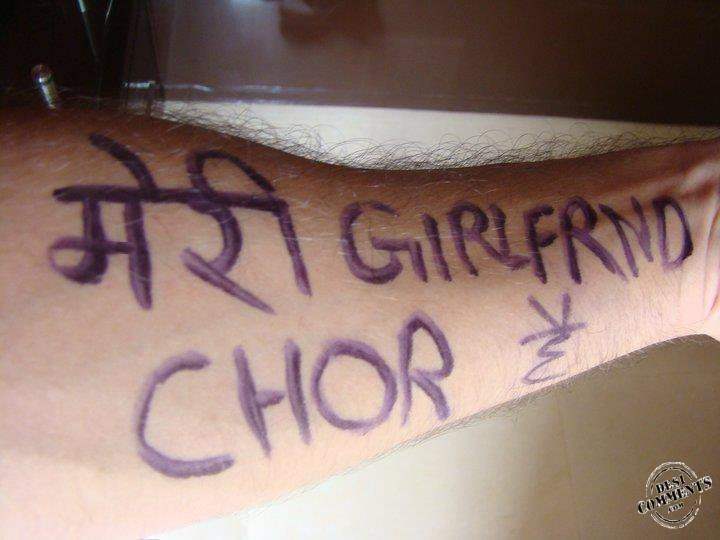 मेरी GIRLFRND
CHOR
DESI
COMMENTS
.COM